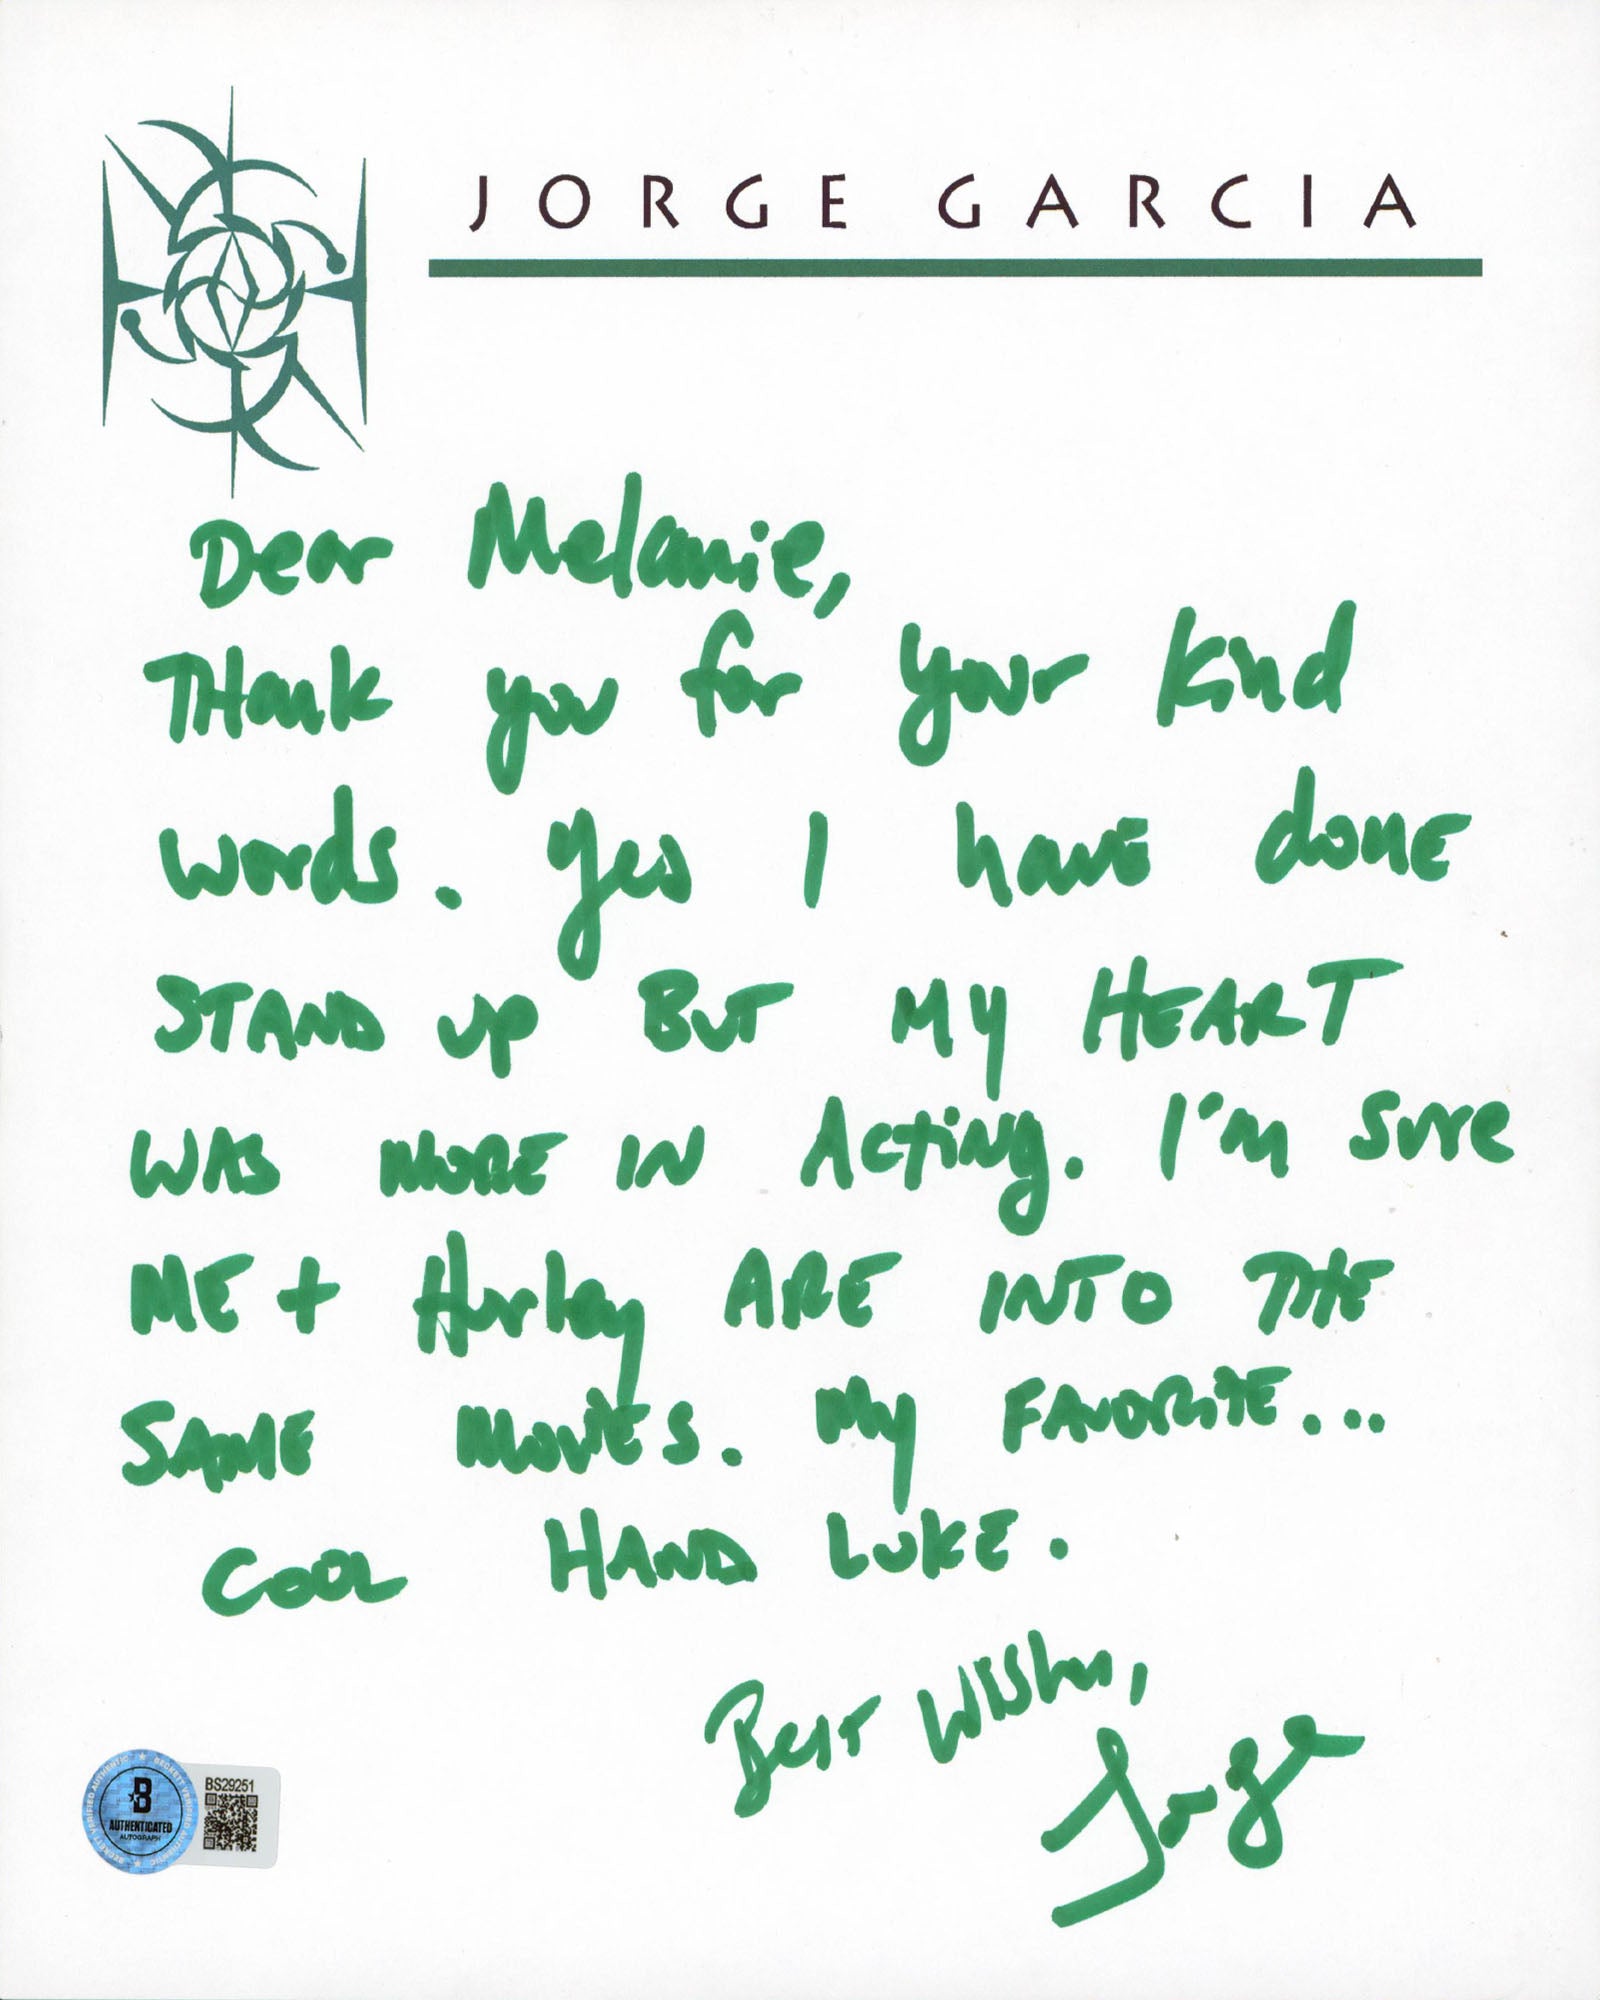 JORGE GARCIA
Dear Melanie,
THank you for your kind
words. Yes I have donE
STAND UP BUT MY HEART
WAS MORE IN Acting. I'm sure
ME + Hurley ARE INTO THE
SAME MOVIES. My FAVORITE...
COOL HAND LUKE.
BEST WISHes,
Jorge
BECKETT VERIFIED AUTHENTIC
B
AUTHENTICATED
AUTOGRAPH
BS29251